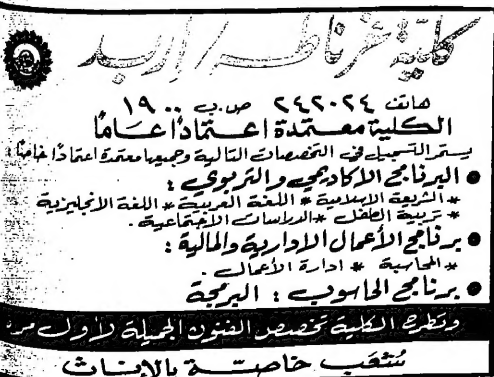 كلية غرناطة / اربد
هاتف ٢٤٢٠٢٤ ص.ب ١٩٠٠
الكلية معتمدة اعتماداً عاماً
يستمر التسجيل في التخصصات التالية وجميعها معتمدة اعتماداً خاصاً :
● البرنامج الاكاديمي والتربوي :
* الشريعة الاسلامية * اللغة العربية * اللغة الانجليزية
* تربية الطفل * الدراسات الاجتماعية .
● برنامج الأعمال الادارية والمالية :
* المحاسبة * ادارة الأعمال .
● برنامج الحاسوب : البرمجة
وتطرح الكلية تخصص الفنون الجميلة لأول مرة
شعب خاصة بالإناث